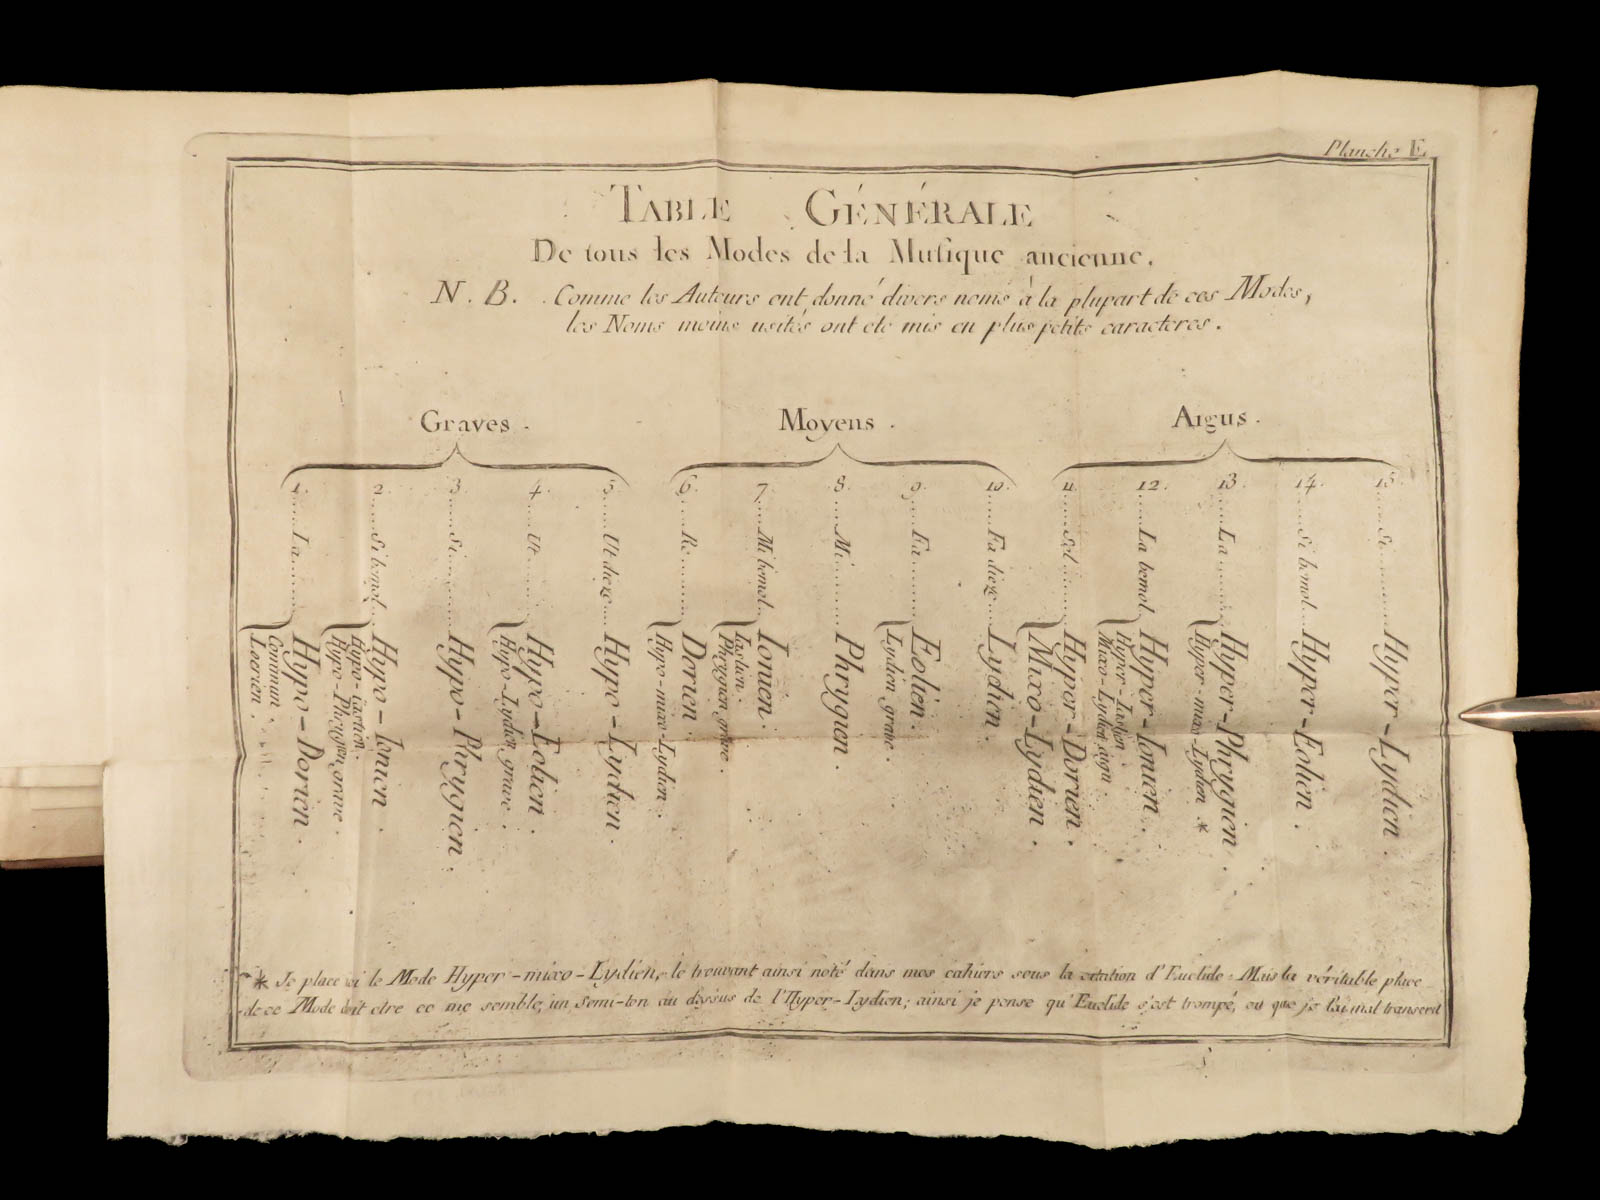 Planche E.
TABLE GÉNÉRALE
De tous les Modes de la Musique ancienne.
N. B. Comme les Auteurs ont donné divers noms à la plupart de ces Modes,
les Noms moins usités ont eté mis en plus petits caracteres.
Graves.
1. La
Hypo-Dorien.
Commun.
Locrien.
2. Si bemol
Hypo-Ionien.
Hypo-iastien.
Hypo-Phrygien grave.
3. Si
Hypo-Phrygien.
4. Ut
Hypo-Eolien.
Hypo-Lydien grave.
5. Ut dieze
Hypo-Lydien.
Moyens.
6. Re
Dorien.
Hypo-mixo-Lydien.
7. Mi bemol
Ionien.
Iastien.
Phrygien grave.
8. Mi
Phrygien.
9. Fa
Eolien.
Lydien grave.
10. Fa dieze
Lydien.
Aigus.
11. Sol
Hyper-Dorien.
Mixo-Lydien.
12. La bemol
Hyper-Ionien.
Hyper-Iastien.
Mixo-Lydien aigu.
13. La
Hyper-Phrygien.
Hyper-mixo-Lydien.*
14. Si bemol
Hyper-Eolien.
15. Si
Hyper-Lydien.
* Je place ici le Mode Hyper-mixo-Lydien, le trouvant ainsi noté dans mes cahiers sous la citation d'Euclide. Mais la véritable place
de ce Mode doit etre ce me semble, un semi-ton au dessus de l'Hyper-Lydien; ainsi je pense qu'Euclide s'est trompé, ou que je l'ai mal transcrit